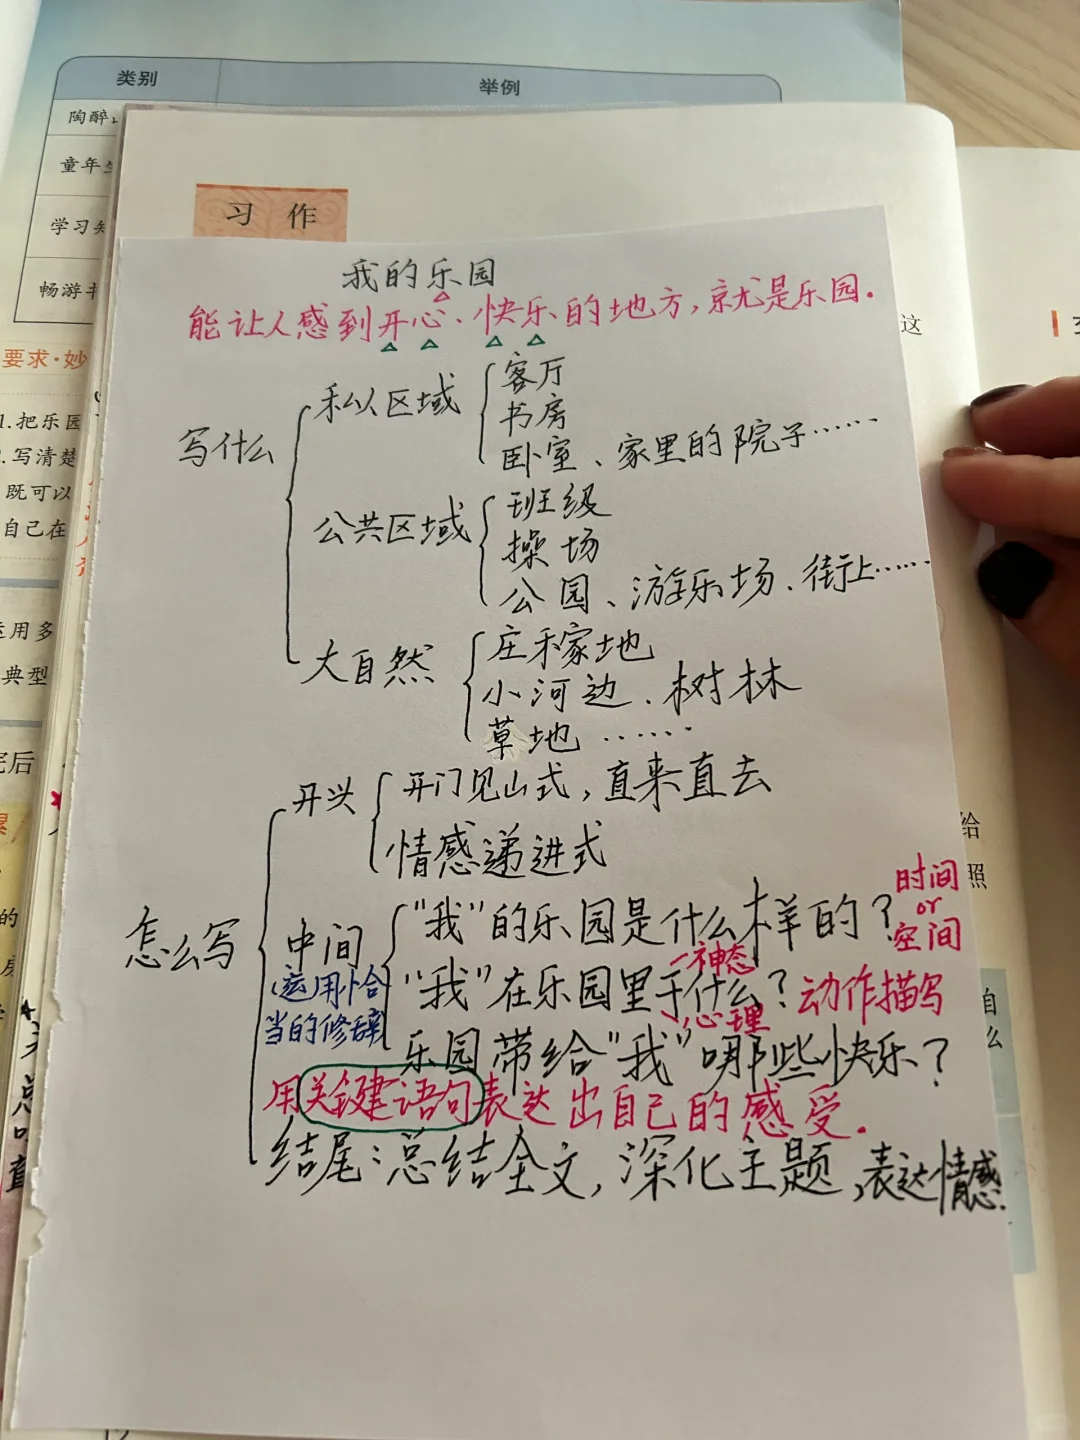 类别 举例
陶醉
童年
学习
畅游
习 作
要求·妙
1.把乐园
写清楚
既可以
自己在
运用多
典型
完后
的
这
给
照
自
么
我的乐园
能让人感到开心、快乐的地方,就是乐园.
写什么
私人区域
客厅
书房
卧室、家里的院子……
公共区域
班级
操场
公园、游乐场、街上……
大自然
庄稼地
小河边、树林
草地……
怎么写
开头
开门见山式,直来直去
情感递进式
中间
(运用恰当的修辞)
"我"的乐园是什么样的?
时间
or
空间
"我"在乐园里干什么?
神态
动作描写
心理
乐园带给"我"哪些快乐?
用关键语句表达出自己的感受.
结尾:总结全文,深化主题,表达情感.